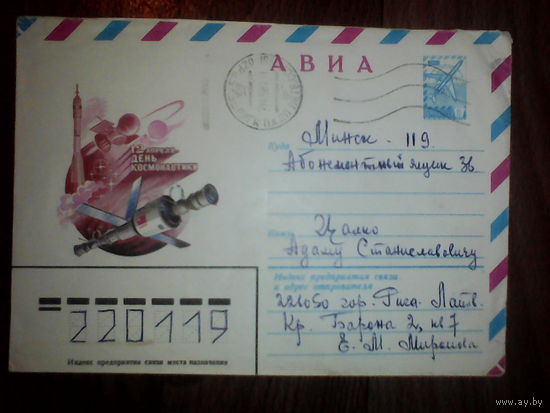 АВИА
12 АПРЕЛЯ
ДЕНЬ
КОСМОНАВТИКИ
Куда Минск - 119.
Абонементный ящик 36
Кому Цалко
Адаму Станиславовичу
Индекс предприятия связи
и адрес отправителя
226050 гор. Рига. Латв.
Кр. Барона 2, кв 7
Е. М. Миронова
220119
Индекс предприятия связи места назначения
www.ay.by